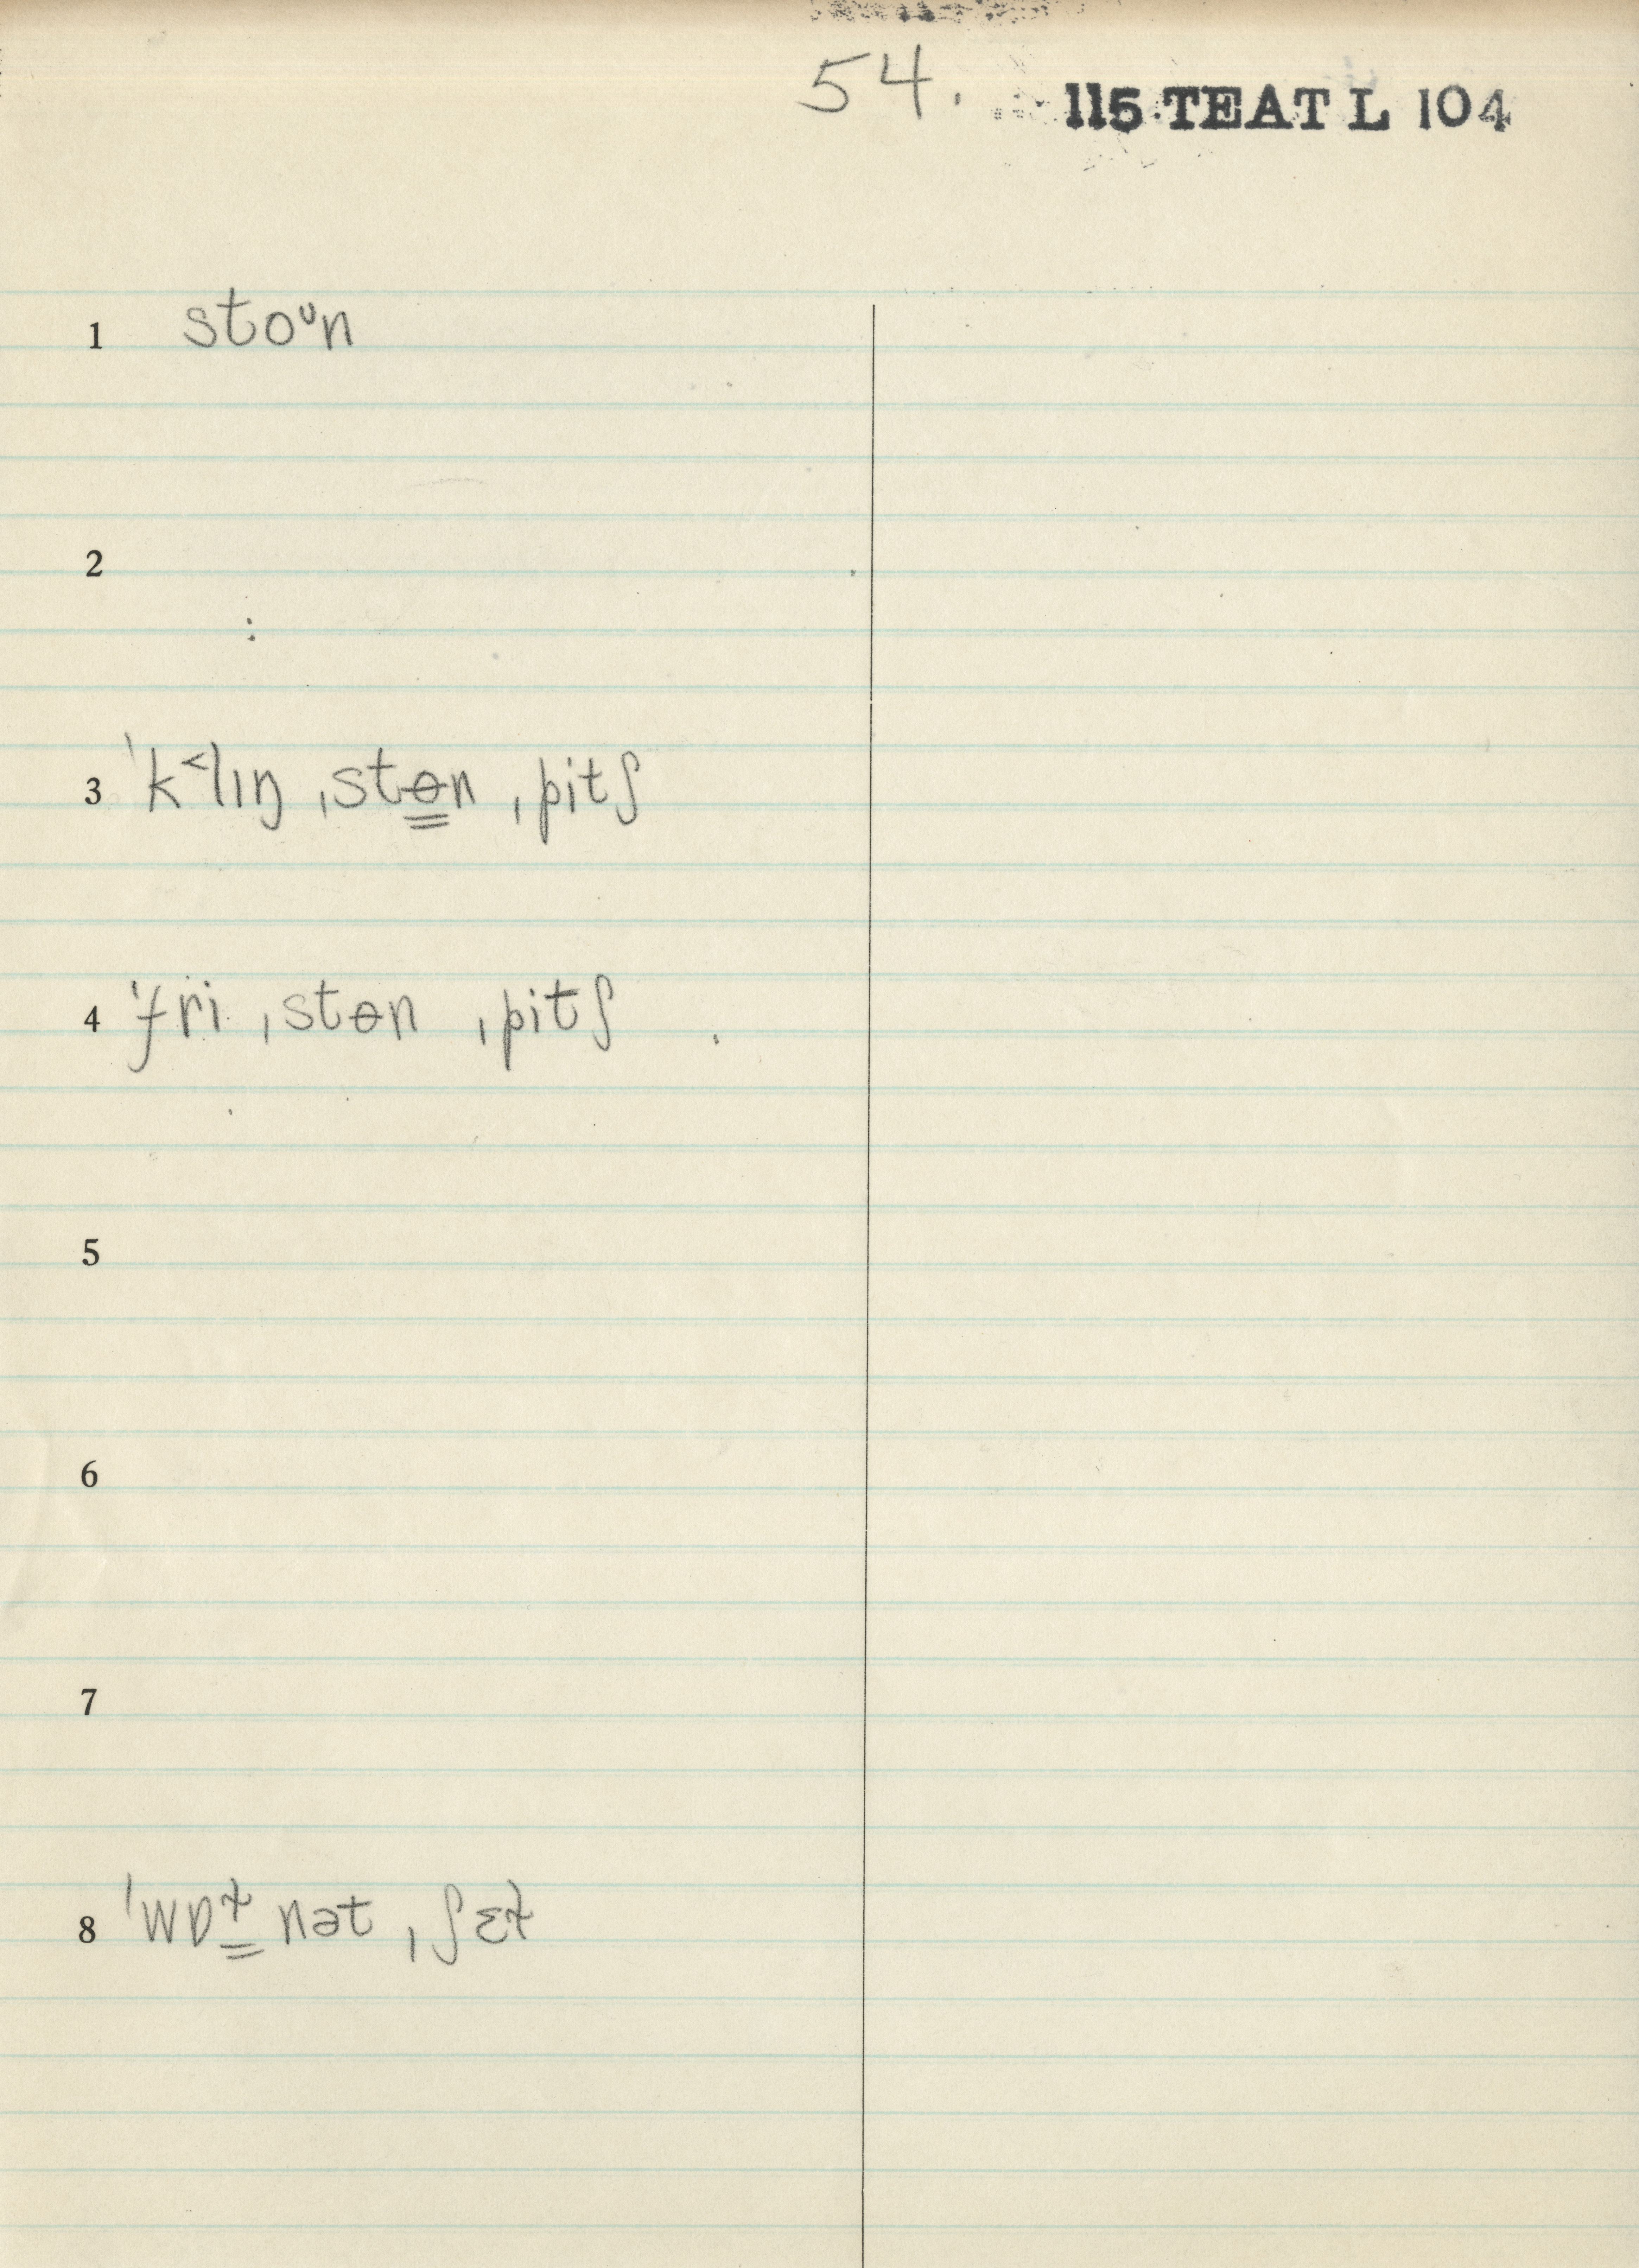 54. 115 TEAT L 104
1 stoᶷn
2
3 ˈk˂lɪŋ ˌstɵ̳n ˌpitʃ
4 ˈfri ˌstɵn ˌpitʃ
5
6
7
8 ˈwɒɫ̳ nət ˌʃɛɫ